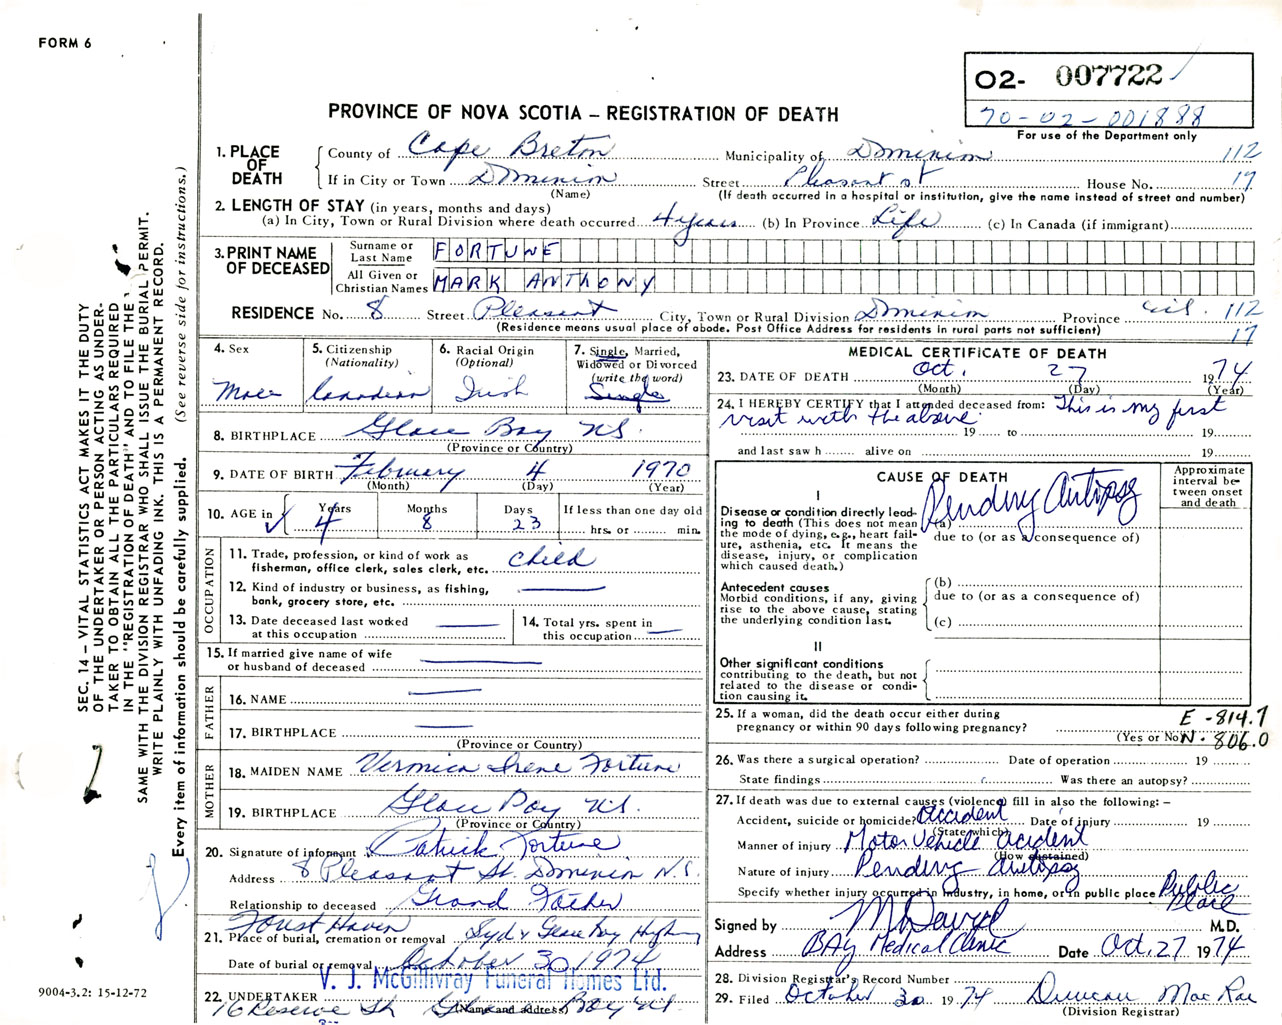 FORM 6
O2- 007722
70-02-001888
For use of the Department only
PROVINCE OF NOVA SCOTIA – REGISTRATION OF DEATH
1. PLACE OF DEATH
County of Cape Breton Municipality of Dominion 112
If in City or Town Dominion Street Pleasant st House No. 17
(Name) (If death occurred in a hospital or institution, give the name instead of street and number)
2. LENGTH OF STAY (in years, months and days)
(a) In City, Town or Rural Division where death occurred 4 years (b) In Province Life (c) In Canada (if immigrant)
3. PRINT NAME OF DECEASED
Surname or Last Name FORTUNE
All Given or Christian Names MARK ANTHONY
RESIDENCE No. 8 Street Pleasant City, Town or Rural Division Dominion Province 112
(Residence means usual place of abode. Post Office Address for residents in rural parts not sufficient) 17
4. Sex
Male
5. Citizenship
(Nationality)
Canadian
6. Racial Origin
(Optional)
Irish
7. Single, Married,
Widowed or Divorced
(write the word)
Single
8. BIRTHPLACE Glace Bay NS.
(Province or Country)
9. DATE OF BIRTH February 4 1970
(Month) (Day) (Year)
10. AGE in
Years Months Days If less than one day old
4 8 23 hrs. or min.
OCCUPATION
11. Trade, profession, or kind of work as
fisherman, office clerk, sales clerk, etc. child
12. Kind of industry or business, as fishing,
bank, grocery store, etc.
13. Date deceased last worked
at this occupation
14. Total yrs. spent in
this occupation
15. If married give name of wife
or husband of deceased
FATHER
16. NAME
17. BIRTHPLACE
(Province or Country)
MOTHER
18. MAIDEN NAME Veronica Irene Fortune
19. BIRTHPLACE Glace Bay NS.
(Province or Country)
20. Signature of informant Patrick Fortune
Address 8 Pleasant St. Dominion N.S.
Relationship to deceased Grand Father
Forest Haven
21. Place of burial, cremation or removal Syd & Glace Bay Highway
Date of burial or removal October 30 1974
V. J. McGillivray Funeral Homes Ltd.
22. UNDERTAKER
16 Reserve St. Glace Bay NS
(Name and address)
MEDICAL CERTIFICATE OF DEATH
23. DATE OF DEATH Oct. 27 1974
(Month) (Day) (Year)
24. I HEREBY CERTIFY that I attended deceased from: This is my first
visit with the above
19 to 19
and last saw h alive on 19
CAUSE OF DEATH
Approximate interval between onset and death
I
Disease or condition directly leading to death (This does not mean the mode of dying, e.g., heart failure, asthenia, etc. It means the disease, injury, or complication which caused death.)
(a) Pending Autopsy
due to (or as a consequence of)
Antecedent causes
Morbid conditions, if any, giving rise to the above cause, stating the underlying condition last.
(b)
due to (or as a consequence of)
(c)
II
Other significant conditions
contributing to the death, but not related to the disease or condition causing it.
25. If a woman, did the death occur either during
pregnancy or within 90 days following pregnancy?
(Yes or No)
E -814.7
N. 806.0
26. Was there a surgical operation? Date of operation 19
State findings Was there an autopsy?
27. If death was due to external causes (violence) fill in also the following: –
Accident, suicide or homicide? Accident Date of injury 19
(State which)
Manner of injury Motor Vehicle accident
(How sustained)
Nature of injury Pending Autopsy
Specify whether injury occurred in industry, in home, or in public place Public Place
Signed by M.D.
Address BAy Medical Clinic Date Oct. 27 1974
28. Division Registrar's Record Number
29. Filed October 30 1974 Duncan Mac Rae
(Division Registrar)
SEC. 14 – VITAL STATISTICS ACT MAKES IT THE DUTY
OF THE UNDERTAKER OR PERSON ACTING AS UNDER-
TAKER TO OBTAIN ALL THE PARTICULARS REQUIRED
IN THE "REGISTRATION OF DEATH" AND TO FILE THE
SAME WITH THE DIVISION REGISTRAR WHO SHALL ISSUE THE BURIAL PERMIT.
WRITE PLAINLY WITH UNFADING INK. THIS IS A PERMANENT RECORD.
Every item of information should be carefully supplied. (See reverse side for instructions.)
9004-3.2: 15-12-72